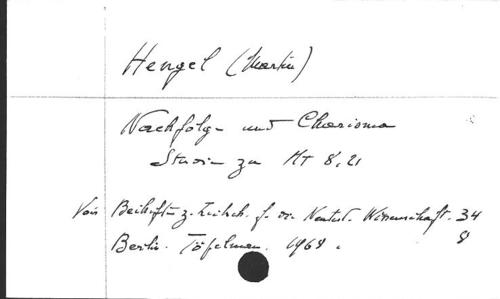 Hengel (Martin)
Nachfolge und Charisma
Studien zu Mt 8,21
Voir Beihefte z. Zeitsch. f. die Neutest. Wissenschaft. 34
Berlin. Töpelman. 1968. 8